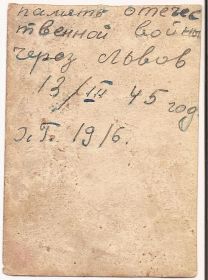 память отечес
твенной войны
через Львов
13/III 45 год
х.Г. 1916.